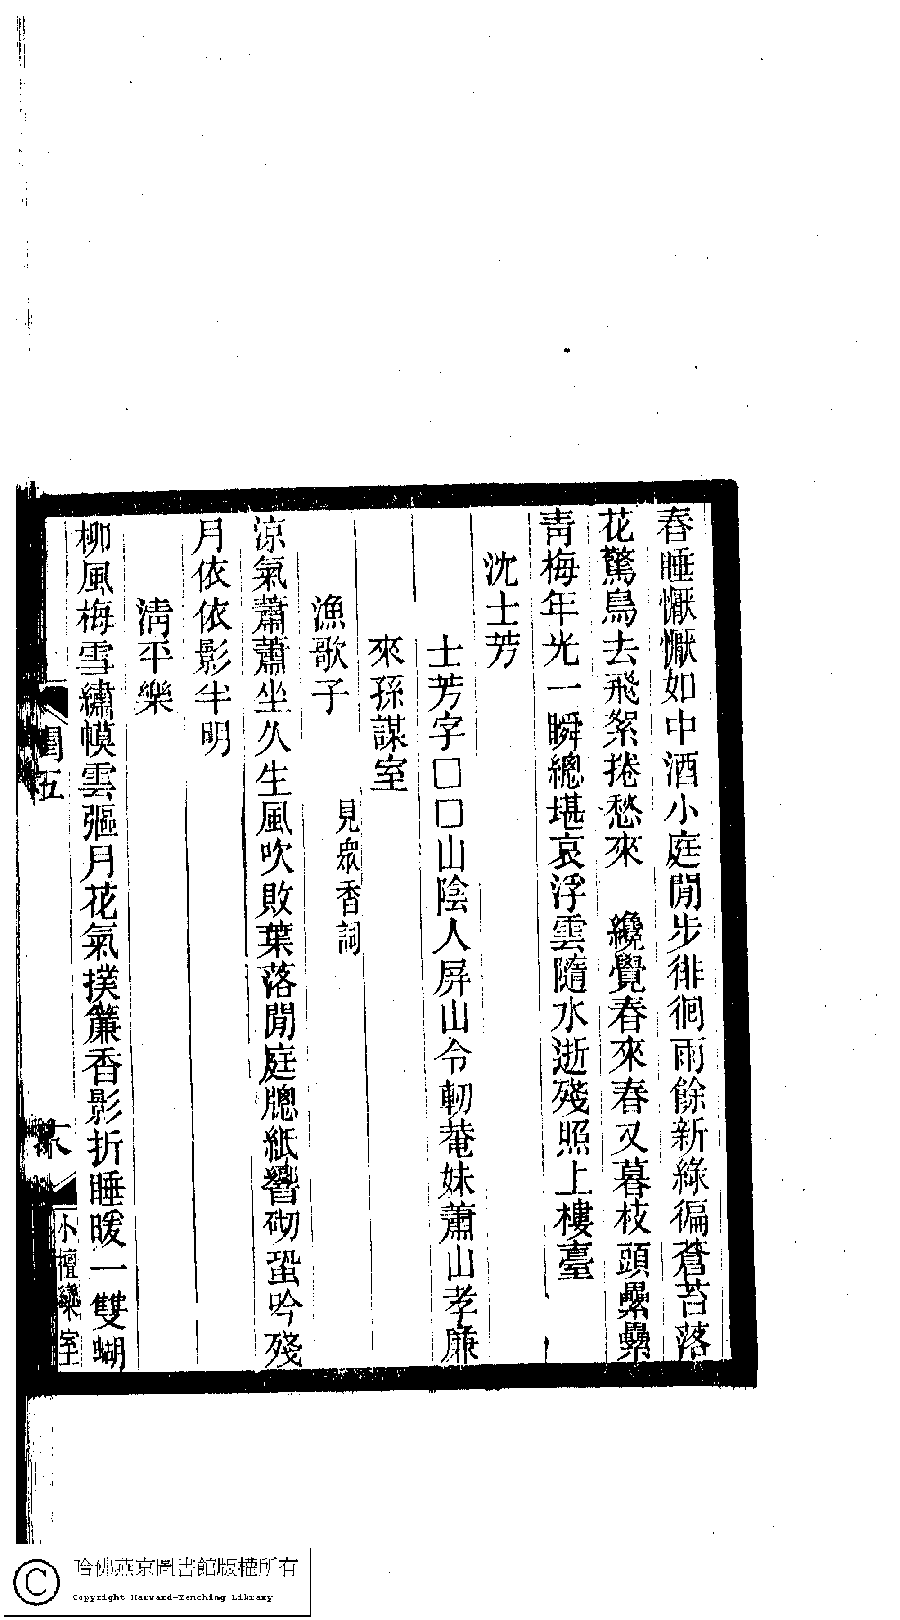 春睡懨懨如中酒小庭閒步徘徊雨餘新綠徧蒼苔落
花驚鳥去飛絮捲愁來　纔覺春來春又暮枝頭纍纍
青梅年光一瞬總堪哀浮雲隨水逝殘照上樓臺
沈士芳
士芳字囗囗山陰人屏山令軔菴妹蕭山孝廉
來孫謀室
見衆香詞
漁歌子
涼氣蕭蕭坐久生風吹敗葉落閒庭牕紙響砌蛩吟殘
月依依影半明
清平樂
柳風梅雪繡幙雲彄月花氣撲簾香影折睡暖一雙蝴
閨五
小檀欒室
哈佛燕京圖書館版權所有
Copyright Harvard-Yenching Library